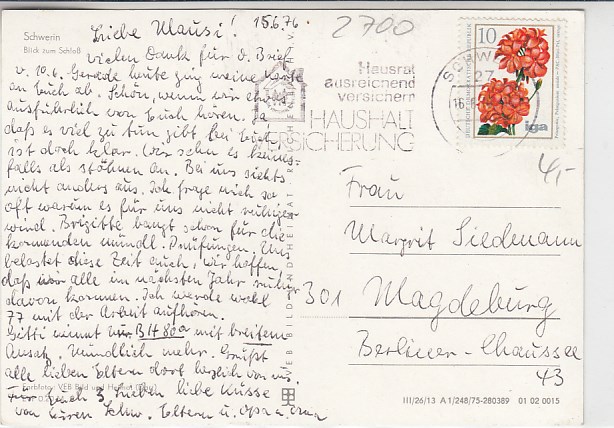 Schwerin
Blick zum Schloß
Liebe Mausi! 15.6.76.
Vielen Dank für d. Brief
v. 10.6. Gerade heute ging meine Karte
an Euch ab. Schön, wenn wir etwas
ausführlich von Euch hören. Ja
daß es viel zu tun gibt bei Euch
ist doch klar. Wir sehen es keines-
falls als stöhnen an. Bei uns siehts
nicht anders aus. Ich frage mich so
oft warum es für uns nicht ruhiger
wird. Brigitte bangt schon für die
kommenden mündl. Prüfungen. Uns
belastet diese Zeit auch, wir hoffen,
daß wir alle im nächsten Jahr
davon kommen. Ich werde wohl
77 mit der Arbeit aufhören.
Gitti nimmt nur BH 80a mit breitem
Ansatz. Mündlich mehr. Grüßt
alle lieben Eltern dort herzlich von uns.
Für Euch 3 Lieben liebe Küsse
von Euren Schw. Eltern u. Opa u. Oma
Farbfoto: VEB Bild und Heimat
VEB BILD UND HEIMAT REICHENBACH
2700
Hausrat
ausreichend
versichern
HAUSHALT
VERSICHERUNG
SCHWERIN
27
10
iga
4,-
Frau
Margrit Siedemann
301 Magdeburg
Berliner-Chaussee
43
III/26/13 A 1/248/75-280389 01 02 0015